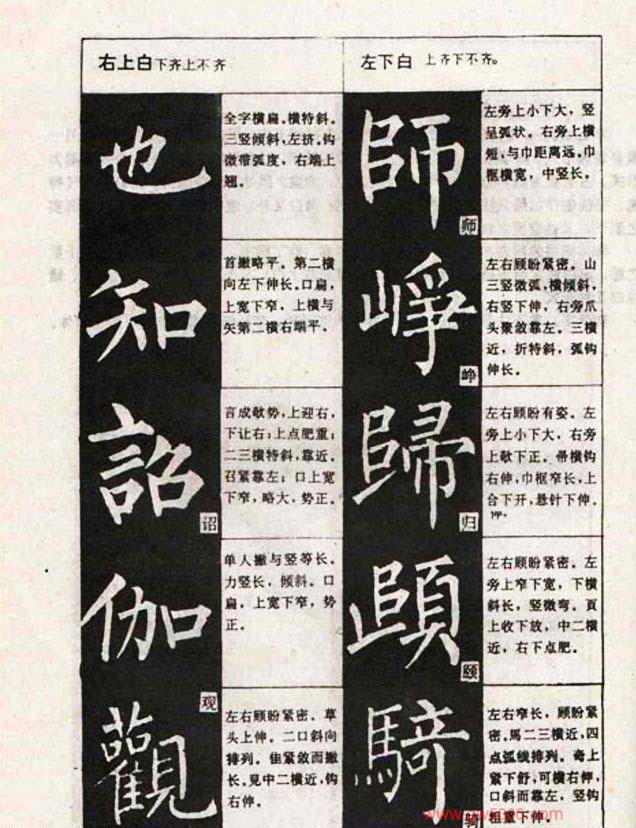 右上白下齐上不齐
也
全字横扁、横特斜。
三竖倾斜,左挤。钩
微带弧度,右端上
翘。
知
首撇略平。第二横
向左下伸长。口扁,
上宽下窄,上横与
矢第二横右端平。
詔
诏
言成敧势,上迎右,
下让右;上点肥重;
二三横特斜,靠近。
召紧靠左;口上宽
下窄,略大,势正。
伽
单人撇与竖等长。
力竖长,倾斜。口
扁,上宽下窄,势
正。
观
觀
左右顾盼紧密。草
头上伸。二口斜向
排列。隹紧敛而撇
长。見中二横近,钩
右伸。
左下白 上齐下不齐。
師
师
左旁上小下大,竖
呈弧状。右旁上横
短、与巾距离远。巾
框横宽,中竖长。
崢
峥
左右顾盼紧密。山
三竖微弧,横倾斜,
右竖下伸。右旁爪
头聚敛靠左。三横
近,折特斜,弧钩
伸长。
歸
归
左右顾盼有姿。左
旁上小下大,右旁
上敧下正。帚横钩
右伸,巾框窄长,上
合下开,悬针下伸。
伸。
頤
颐
左右顾盼紧密。左
旁上窄下宽,下横
斜长,竖微弯。頁
上收下放,中二横
近,右下点肥。
騎
左右窄长,顾盼紧
密。馬二三横近,四
点弧线排列。奇上
紧下舒,可横右伸,
口斜而靠左,竖钩
粗重下伸。